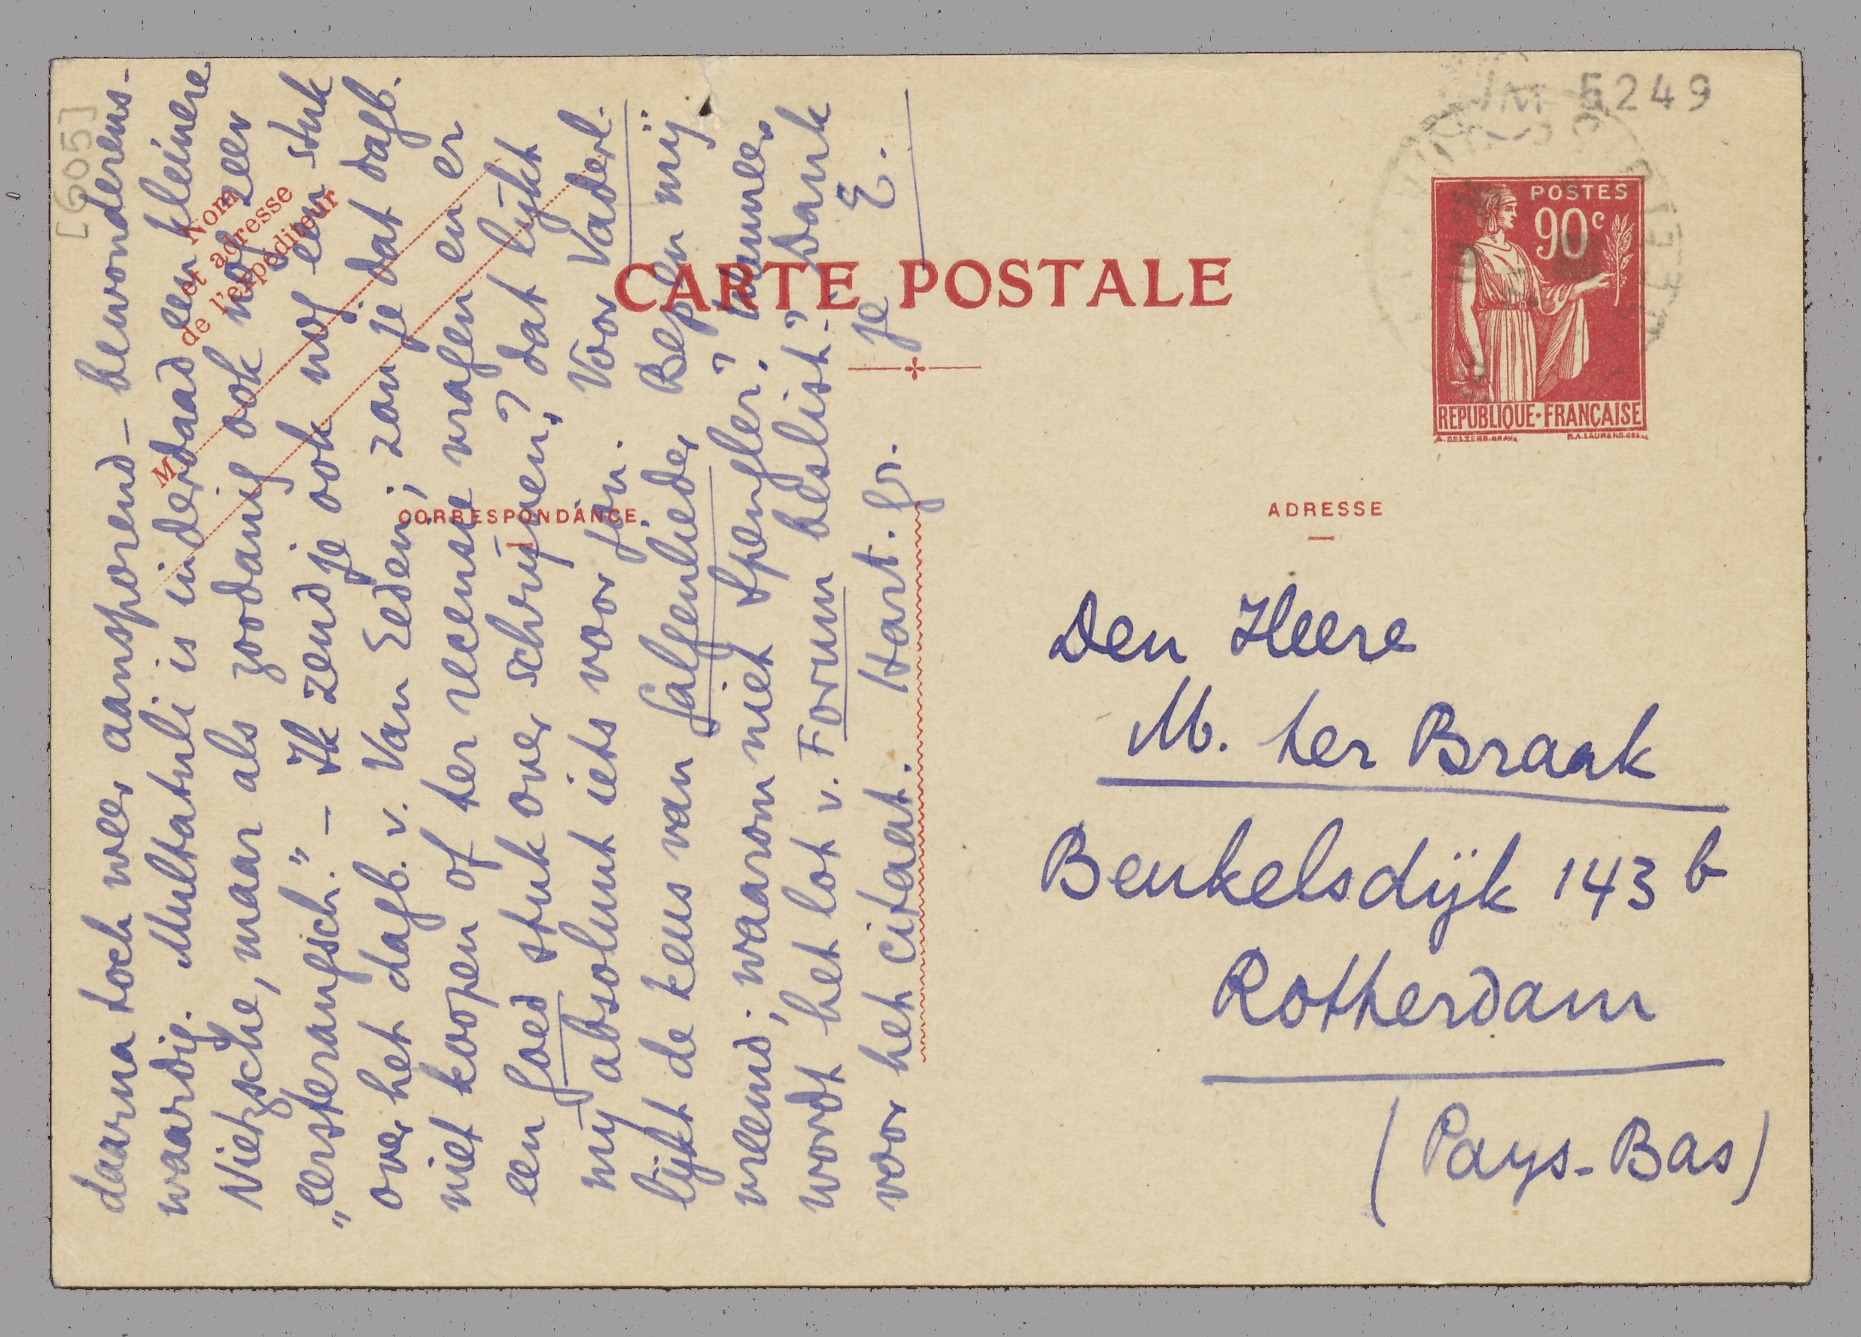 [605]
5249
POSTES
90c
REPUBLIQUE·FRANÇAISE
CARTE POSTALE
Nom
et adresse
de l'expéditeur
M
CORRESPONDANCE
ADRESSE
daarna toch weer aansporend – bewonderens-
waardig. Multatuli is inderdaad een kleinere
Nietzsche, maar als zoodanig ook nog zeer
„eersterangsch." – Ik zend je ook nog een stuk
over het dagb. v. Van Eeden; zou je dat dagb.
niet koopen of ter recensie vragen en er
een goed stuk over schrijven? dat lijkt
mij absoluut iets voor jou. Voor Vaderl.
lijkt de keus van Galgenlieder Bep en mij
vreemd; waarom niet Spengler? Wanneer
wordt het lot v. Forum beslist? Dank
voor het citaat. Hart. gr. je E.
Den Heere
M. ter Braak
Beukelsdijk 143 b
Rotterdam
(Pays-Bas)